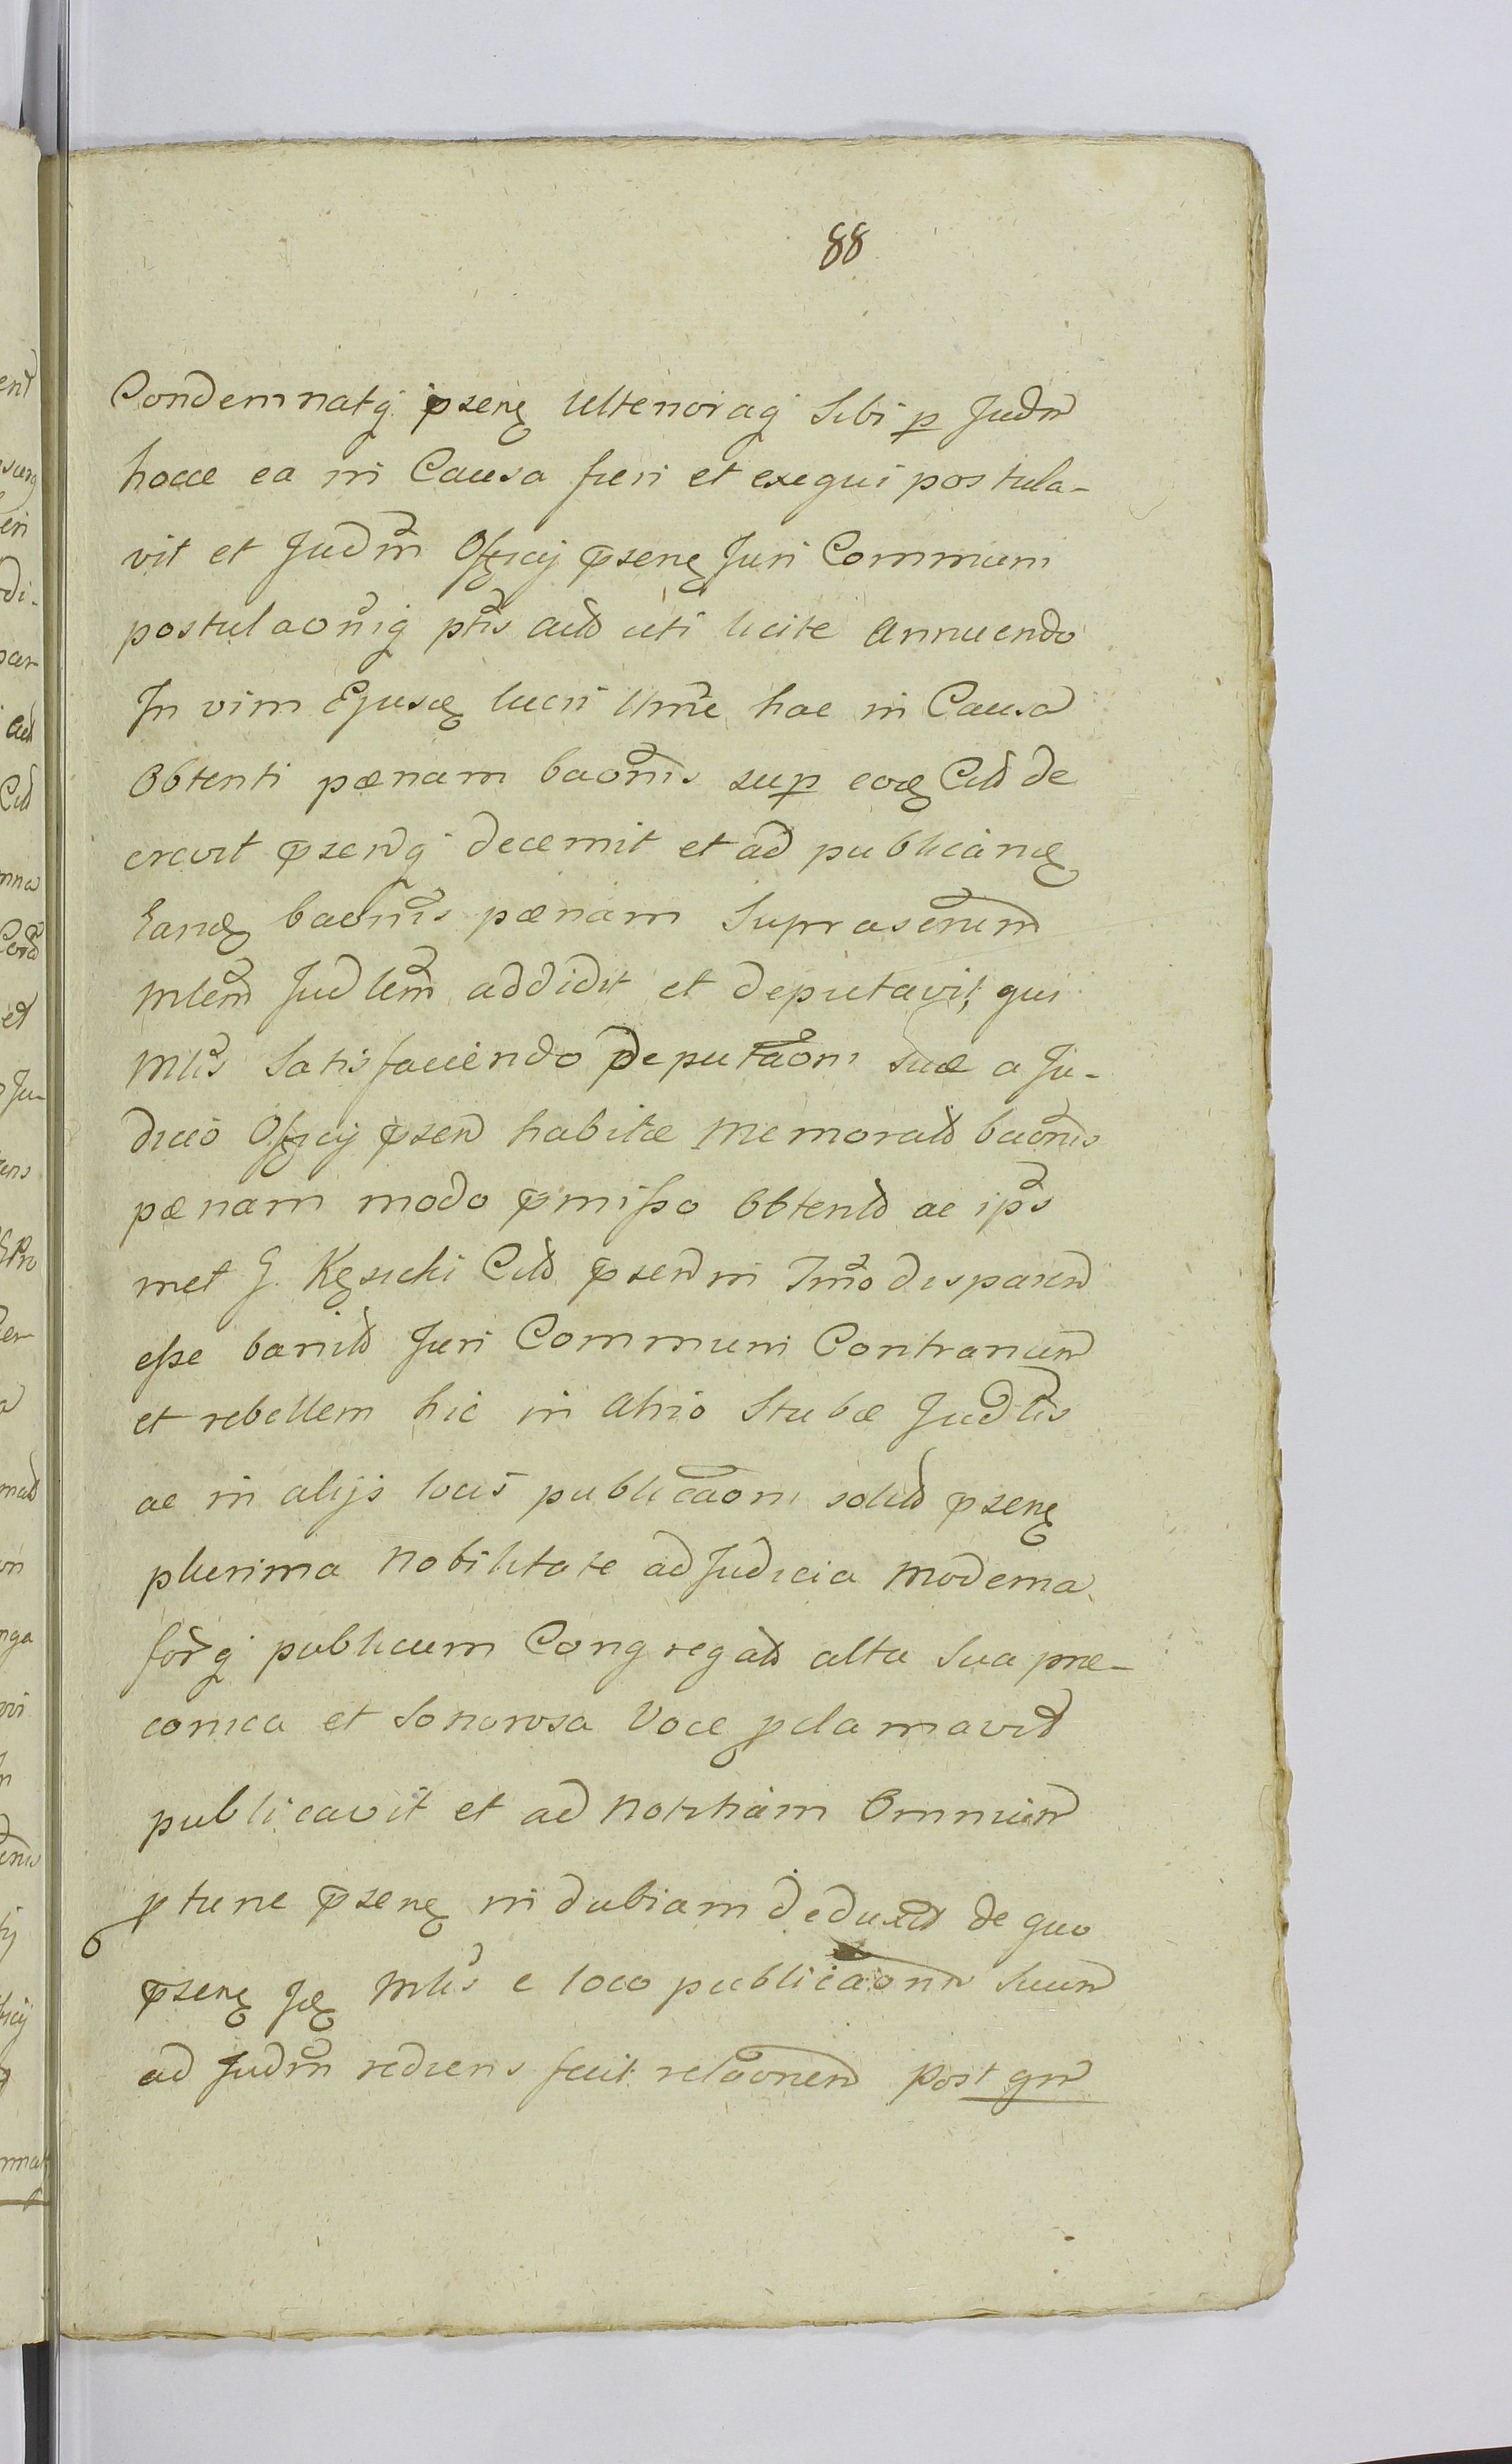 88
Condemnatq psenq Ulterioraq Sibi p Judm
hocce ea in Causa fieri et exequi postula-
vit et Judm Officij psenq Juri Communi
postulaoniq ptis actd uti licite Annuendo
In vim Ejusd lucri Ume hac in Causa
Obtenti pœnam baonis sup eod Citd de
crevit psendq decernit et ad publicand
Eand baonis pœnam Suprascrium
Mlem Judlem addidit et deputavit, qui
Mlis Satisfaciendo Deputaoni suæ a Ju-
dicio Officij psen habitæ Memoratd baonis
pœnam modo pmisso Obtentd ac ips
met G. Kęsicki Citd psend in Tmo disparen
esse banitd Juri Communi Contrarium
et rebellem hic in Atrio Stubæ Judlis
ac in alijs locis publicaoni solitd psenq
plurima Nobilitate ad Judicia Moderna
forq publicum Congregatd alta Sua præ-
conica et Sonorosa Voce pclamavit
publicavit et ad Notitiam Omnium
ptunc psenq indubiam deduxit de quo
psenq Jd Mlis e loco publicaonis suum
ad Judm rediens fecit relaonem Post qm